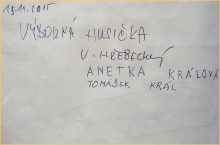 13.11.2015
VÝBORNÁ HUSIČKA
V.
ANETKA KRÁLOVÁ
TOMÁŠEK KRÁL